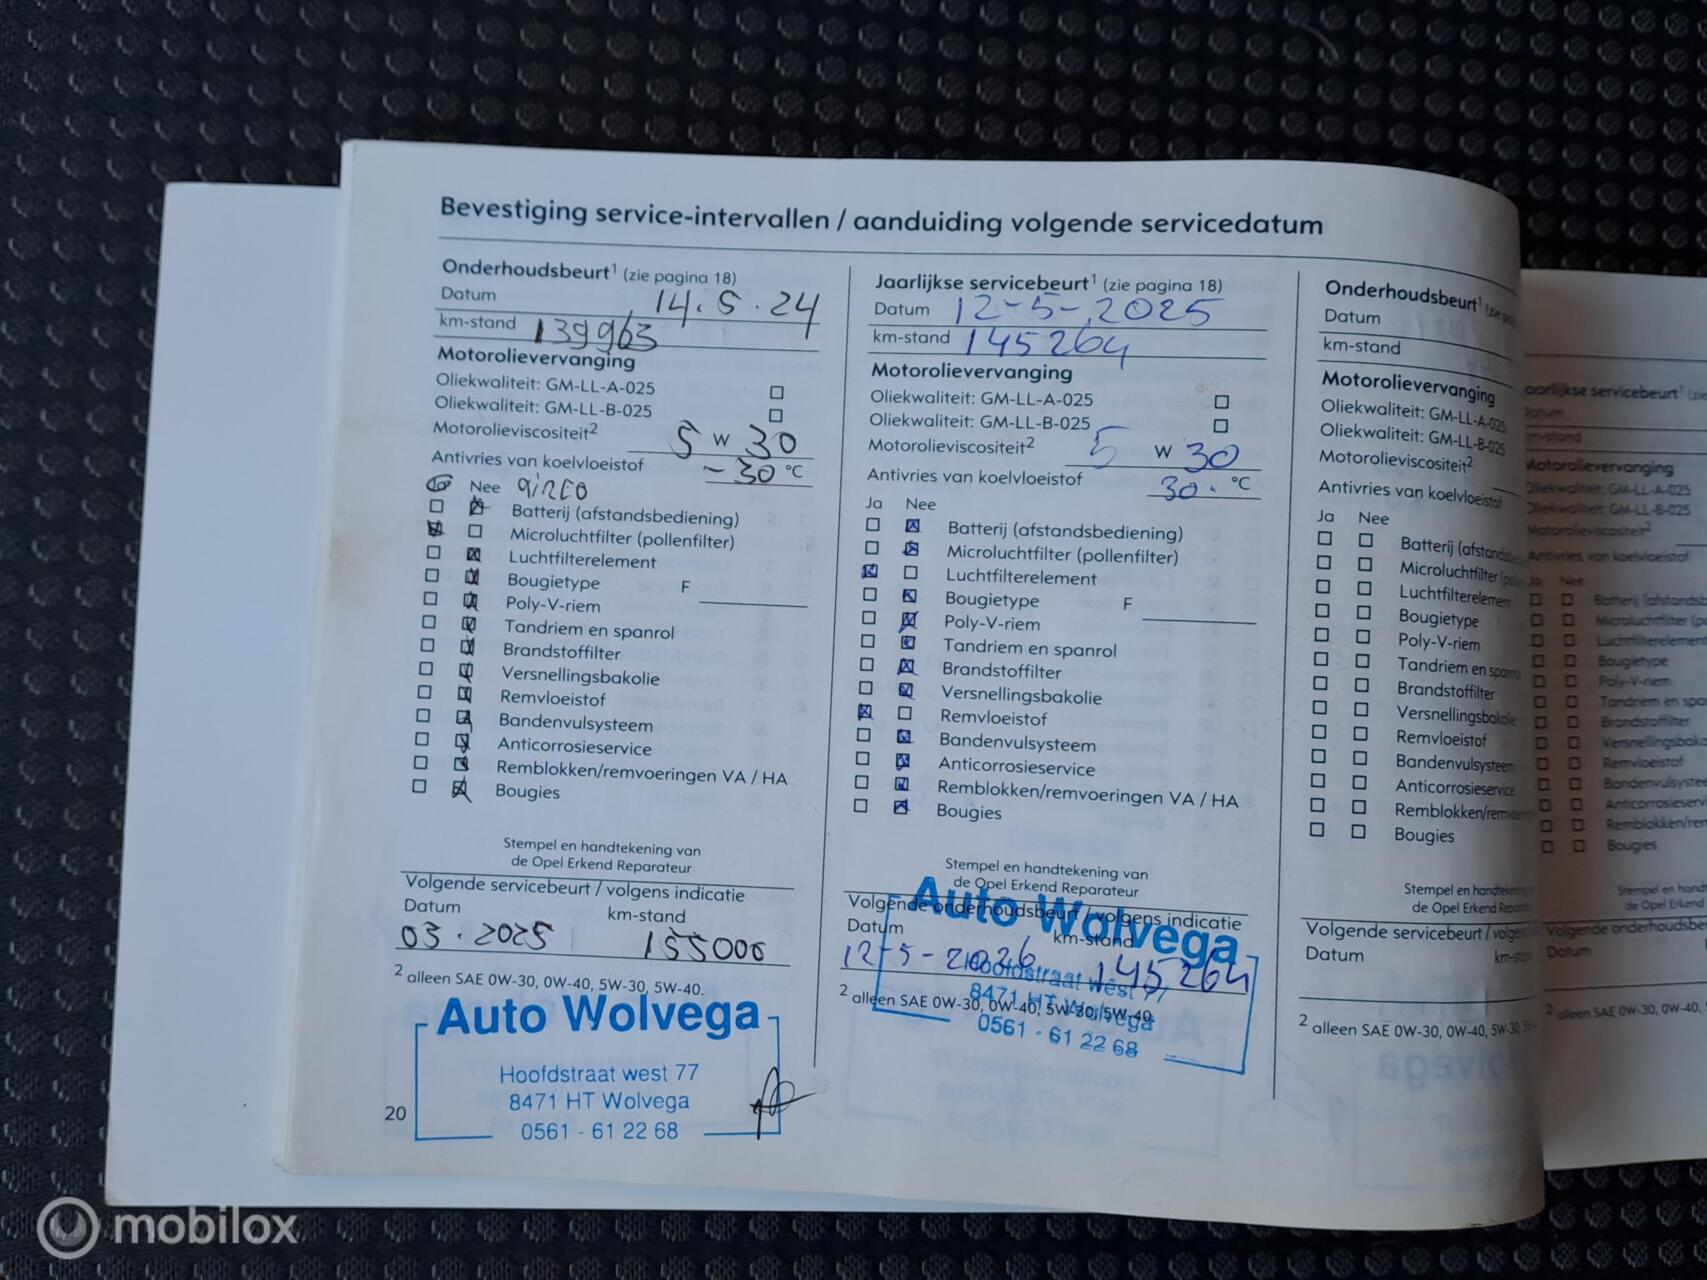 Bevestiging service-intervallen / aanduiding volgende servicedatum
Onderhoudsbeurt¹ (zie pagina 18)
Datum 14.5.24
km-stand 139963
Motorolievervanging
Oliekwaliteit: GM-LL-A-025
Oliekwaliteit: GM-LL-B-025
Motorolieviscositeit² 5 W 30
Antivries van koelvloeistof -30 °C
Nee
Batterij (afstandsbediening)
Microluchtfilter (pollenfilter)
Luchtfilterelement
Bougietype F
Poly-V-riem
Tandriem en spanrol
Brandstoffilter
Versnellingsbakolie
Remvloeistof
Bandenvulsysteem
Anticorrosieservice
Remblokken/remvoeringen VA / HA
Bougies
Stempel en handtekening van
de Opel Erkend Reparateur
Volgende servicebeurt / volgens indicatie
Datum km-stand
03.2025 155000
² alleen SAE 0W-30, 0W-40, 5W-30, 5W-40.
Auto Wolvega
Hoofdstraat west 77
8471 HT Wolvega
0561 - 61 22 68
20
Jaarlijkse servicebeurt¹ (zie pagina 18)
Datum 12-5-2025
km-stand 145264
Motorolievervanging
Oliekwaliteit: GM-LL-A-025
Oliekwaliteit: GM-LL-B-025
Motorolieviscositeit² 5 W 30
Antivries van koelvloeistof 30. °C
Ja Nee
Batterij (afstandsbediening)
Microluchtfilter (pollenfilter)
Luchtfilterelement
Bougietype F
Poly-V-riem
Tandriem en spanrol
Brandstoffilter
Versnellingsbakolie
Remvloeistof
Bandenvulsysteem
Anticorrosieservice
Remblokken/remvoeringen VA / HA
Bougies
Stempel en handtekening van
de Opel Erkend Reparateur
Volgende onderhoudsbeurt / volgens indicatie
Datum km-stand
12-5-2026 145264
² alleen SAE 0W-30, 0W-40, 5W-30, 5W-40.
Auto Wolvega
Hoofdstraat west 77
8471 HT Wolvega
0561 - 61 22 68
Onderhoudsbeurt¹ (zie
Datum
km-stand
Motorolievervanging
Oliekwaliteit: GM-LL-A-025
Oliekwaliteit: GM-LL-B-025
Motorolieviscositeit²
Antivries van koelvloeistof
Ja Nee
Batterij (afstands
Microluchtfilter
Luchtfilterelement
Bougietype
Poly-V-riem
Tandriem en span
Brandstoffilter
Versnellingsbakolie
Remvloeistof
Bandenvulsysteem
Anticorrosieservice
Remblokken/remvoe
Bougies
Stempel en handteken
de Opel Erkend Repara
Volgende servicebeurt / volgens
Datum km-stand
² alleen SAE 0W-30, 0W-40, 5W-30,
aarlijkse servicebeurt¹
Datum
m-stand
Motorolievervanging
Oliekwaliteit: GM-LL-A-025
Oliekwaliteit: GM-LL-B-025
Motorolieviscositeit²
Antivries van koelvloeistof
Ja Nee
Batterij (afstandsb
Microluchtfilter
Luchtfilterelement
Bougietype
Poly-V-riem
Tandriem en spa
Brandstoffilter
Versnellingsbako
Remvloeistof
Bandenvulsystee
Anticorrosieservi
Remblokken/rem
Bougies
Stempel en hand
de Opel Erkend
Volgende onderhoudsbeu
Datum
² alleen SAE 0W-30, 0W-40,
mobilox